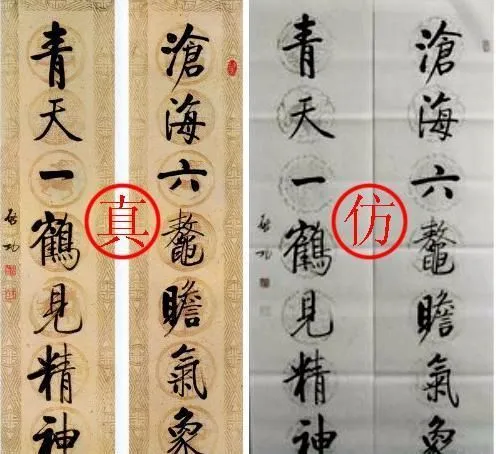 滄海六鼇瞻氣象
青天一鶴見精神
啓功
真
滄海六鼇瞻氣象
青天一鶴見精神
啓功
仿